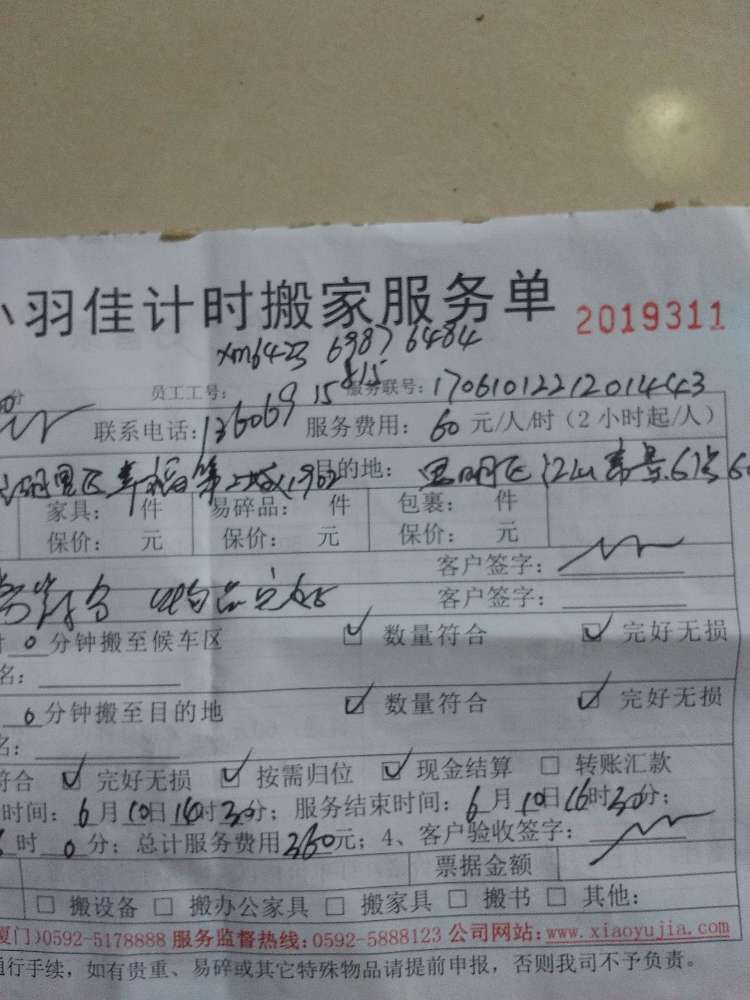 小羽佳计时搬家服务单 2019311
xm6423 69876484
分 员工工号: 15815 服务联号: 17061012212014443
联系电话: 136069 服务费用: 60 元/人/时（2 小时起/人）
幸福第 1902 目的地: 江山帝景
家具: 件 易碎品: 件 包裹: 件
保价: 元 保价: 元 保价: 元
客户签字:
物品完好 客户签字:
0 分钟搬至候车区 ☑ 数量符合 ☑ 完好无损
名:
0 分钟搬至目的地 ☑ 数量符合 ☑ 完好无损
名:
符合 ☑ 完好无损 ☑ 按需归位 ☑ 现金结算 □ 转账汇款
时间: 6 月 10 日 14 时 30 分; 服务结束时间: 6 月 10 日 16 时 30 分;
时 0 分; 总计服务费用 360 元; 4、客户验收签字:
票据金额
□ 搬设备 □ 搬办公家具 □ 搬家具 □ 搬书 □ 其他:
厦门)0592-5178888 服务监督热线:0592-5888123 公司网站:www.xiaoyujia.com
通行手续，如有贵重、易碎或其它特殊物品请提前申报，否则我司不予负责。